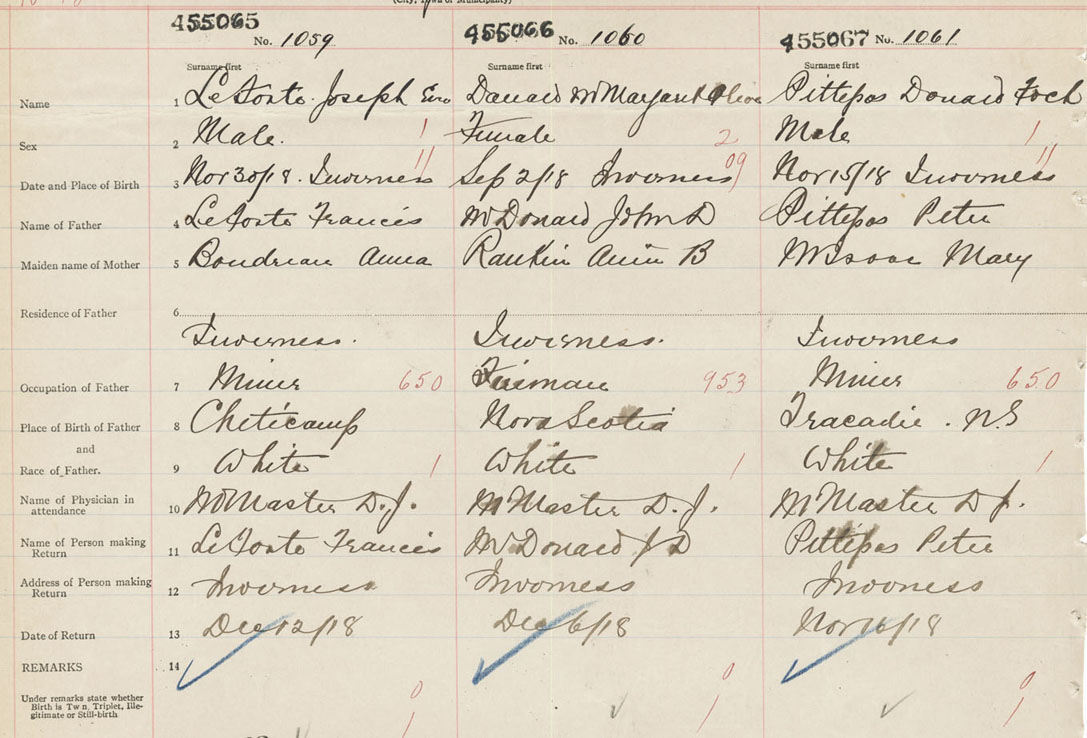 (City, Town or Municipality)
455065 No. 1059 455066 No. 1060 455067 No. 1061
Surname first Surname first Surname first
Name 1 LeForte Joseph Danald Margaret Pittepas Donald Foch
Sex 2 Male. 1 Female 2 Male 1
Date and Place of Birth 3 Nov 30/18. Inverness 11 Sep 2/18 Inverness 09 Nov 15/18 Inverness 11
Name of Father 4 LeForte Francis McDonald John D Pittepas Peter
Maiden name of Mother 5 Boudreau Anna Rankin Annie B Mary
Residence of Father 6
Inverness. Inverness. Inverness
Occupation of Father 7 Miner 650 Fireman 953 Miner 650
Place of Birth of Father 8 Cheticamp Nova Scotia Tracadie. N.S
and
Race of Father. 9 White 1 White 1 White 1
Name of Physician in
attendance 10 McMaster D.J. McMaster D.J. McMaster D J.
Name of Person making
Return 11 LeForte Francis McDonald J D Pittepas Peter
Address of Person making
Return 12 Inverness Inverness Inverness
Date of Return 13 Dec 12/18 Dec 6/18 Nov 16/18
REMARKS 14
Under remarks state whether
Birth is Twn, Triplet, Ille-
gitimate or Still-birth
0 0 0
1 1 1